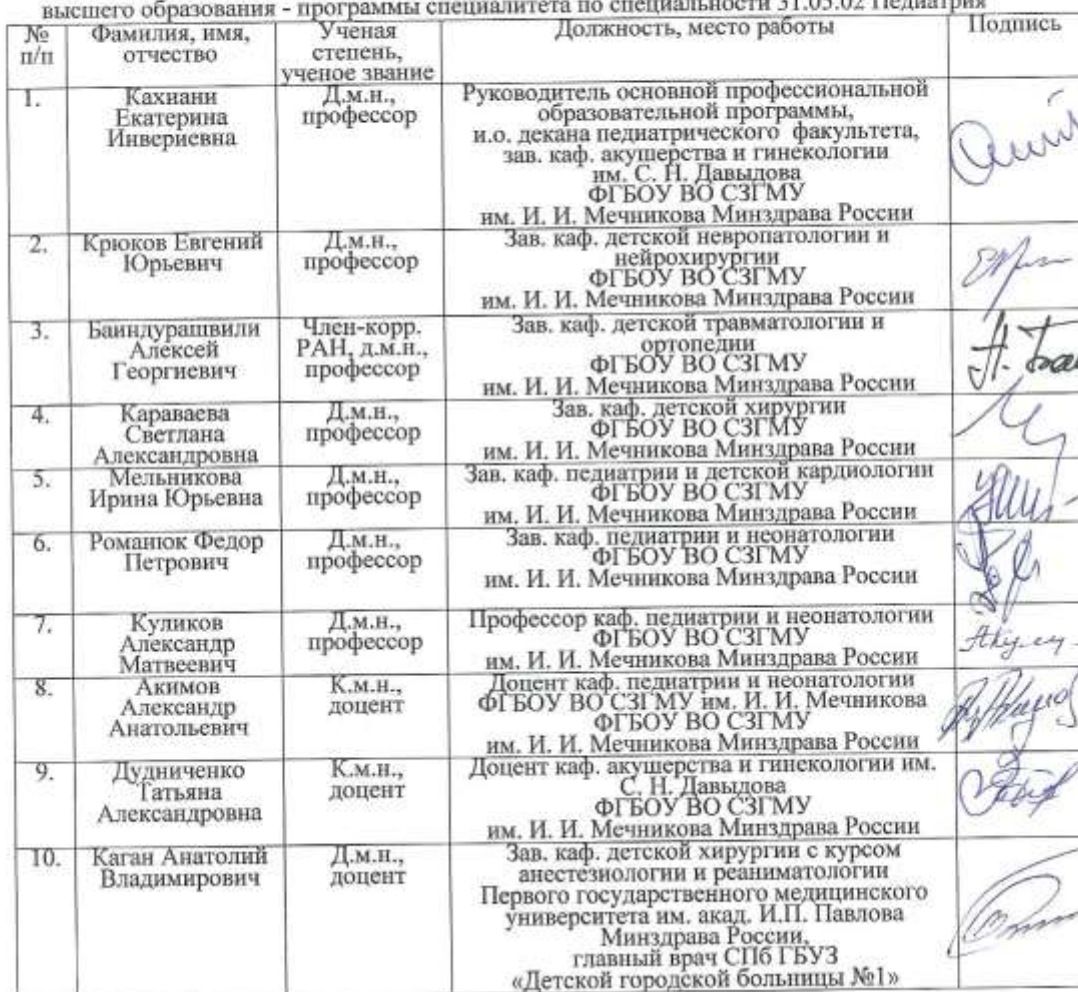 высшего образования - программы специалитета по специальности 31.05.02 Педиатрия
№ п/п Фамилия, имя, отчество Ученая степень, ученое звание Должность, место работы Подпись
1. Кахиани Екатерина Инвериевна Д.м.н., профессор Руководитель основной профессиональной образовательной программы, и.о. декана педиатрического факультета, зав. каф. акушерства и гинекологии им. С. Н. Давыдова ФГБОУ ВО СЗГМУ им. И. И. Мечникова Минздрава России
2. Крюков Евгений Юрьевич Д.м.н., профессор Зав. каф. детской невропатологии и нейрохирургии ФГБОУ ВО СЗГМУ им. И. И. Мечникова Минздрава России
3. Баиндурашвили Алексей Георгиевич Член-корр. РАН, д.м.н., профессор Зав. каф. детской травматологии и ортопедии ФГБОУ ВО СЗГМУ им. И. И. Мечникова Минздрава России
4. Караваева Светлана Александровна Д.м.н., профессор Зав. каф. детской хирургии ФГБОУ ВО СЗГМУ им. И. И. Мечникова Минздрава России
5. Мельникова Ирина Юрьевна Д.м.н., профессор Зав. каф. педиатрии и детской кардиологии ФГБОУ ВО СЗГМУ им. И. И. Мечникова Минздрава России
6. Романюк Федор Петрович Д.м.н., профессор Зав. каф. педиатрии и неонатологии ФГБОУ ВО СЗГМУ им. И. И. Мечникова Минздрава России
7. Куликов Александр Матвеевич Д.м.н., профессор Профессор каф. педиатрии и неонатологии ФГБОУ ВО СЗГМУ им. И. И. Мечникова Минздрава России
8. Акимов Александр Анатольевич К.м.н., доцент Доцент каф. педиатрии и неонатологии ФГБОУ ВО СЗГМУ им. И. И. Мечникова ФГБОУ ВО СЗГМУ им. И. И. Мечникова Минздрава России
9. Дудниченко Татьяна Александровна К.м.н., доцент Доцент каф. акушерства и гинекологии им. С. Н. Давыдова ФГБОУ ВО СЗГМУ им. И. И. Мечникова Минздрава России
10. Каган Анатолий Владимирович Д.м.н., доцент Зав. каф. детской хирургии с курсом анестезиологии и реаниматологии Первого государственного медицинского университета им. акад. И.П. Павлова Минздрава России, главный врач СПб ГБУЗ «Детской городской больницы №1»